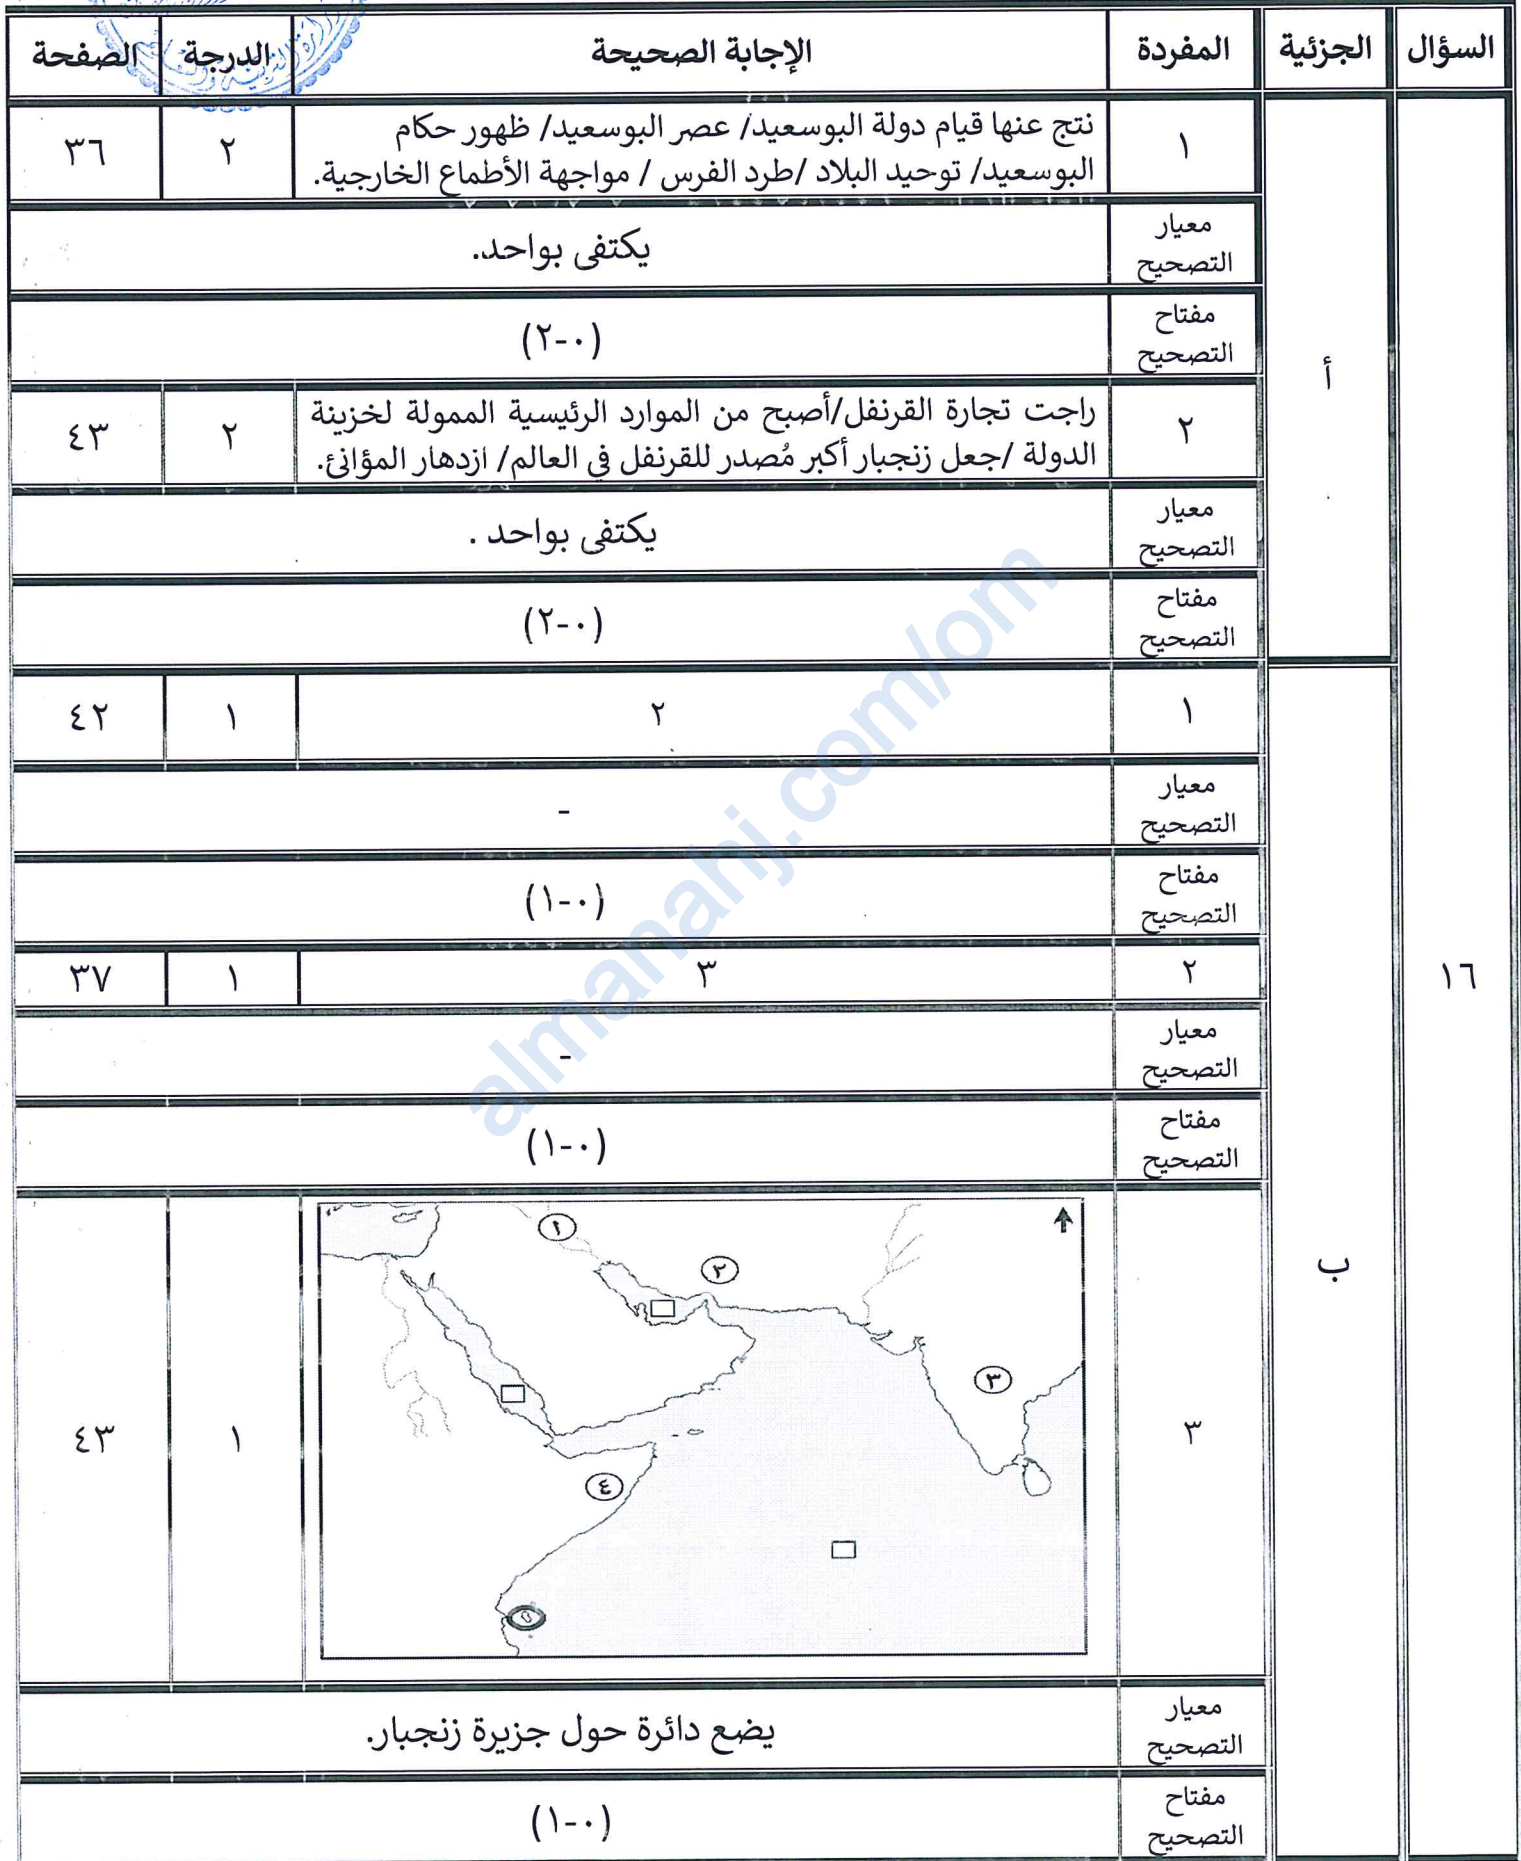 السؤال الجزئية المفردة الإجابة الصحيحة الدرجة الصفحة
١ نتج عنها قيام دولة البوسعيد/ عصر البوسعيد/ ظهور حكام ٢ ٣٦
البوسعيد/ توحيد البلاد /طرد الفرس / مواجهة الأطماع الخارجية.
معيار
التصحيح
يكتفى بواحد.
مفتاح
التصحيح
(٠-٢)
أ
٢ راجت تجارة القرنفل/أصبح من الموارد الرئيسية الممولة لخزينة ٢ ٤٣
الدولة /جعل زنجبار أكبر مُصدر للقرنفل في العالم/ ازدهار المؤانئ.
معيار
التصحيح
يكتفى بواحد .
مفتاح
التصحيح
(٠-٢)
١ ٢ ١ ٤٢
معيار
التصحيح
-
مفتاح
التصحيح
(٠-١)
١٦
٢ ٣ ١ ٣٧
معيار
التصحيح
-
مفتاح
التصحيح
(٠-١)
ب
١
٢
٣
٣ ١ ٤٣
٤
معيار
التصحيح
يضع دائرة حول جزيرة زنجبار.
مفتاح
التصحيح
(٠-١)
almanahj.com/om